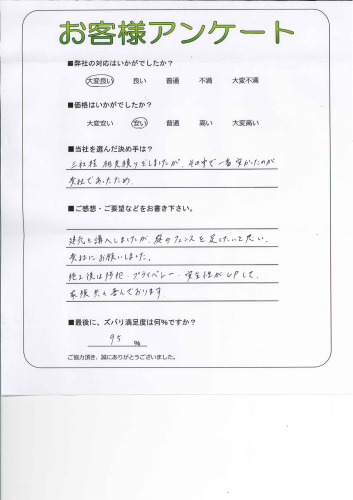 お客様アンケート
■弊社の対応はいかがでしたか？
大変良い 良い 普通 不満 大変不満
■価格はいかがでしたか？
大変安い 安い 普通 高い 大変高い
■当社を選んだ決め手は？
三社程 相見積りをしましたが、その中で一番安かったのが
貴社であったため。
■ご感想・ご要望などをお書き下さい。
建売を購入しましたが、庭のフェンスを足したいと思い、
貴社にお願いしました。
施工後は防犯・プライバシー・安全性がUPして、
家族共々喜んでおります。
■最後に、ズバリ満足度は何%ですか？
95 %
ご協力頂き、誠にありがとうございました。